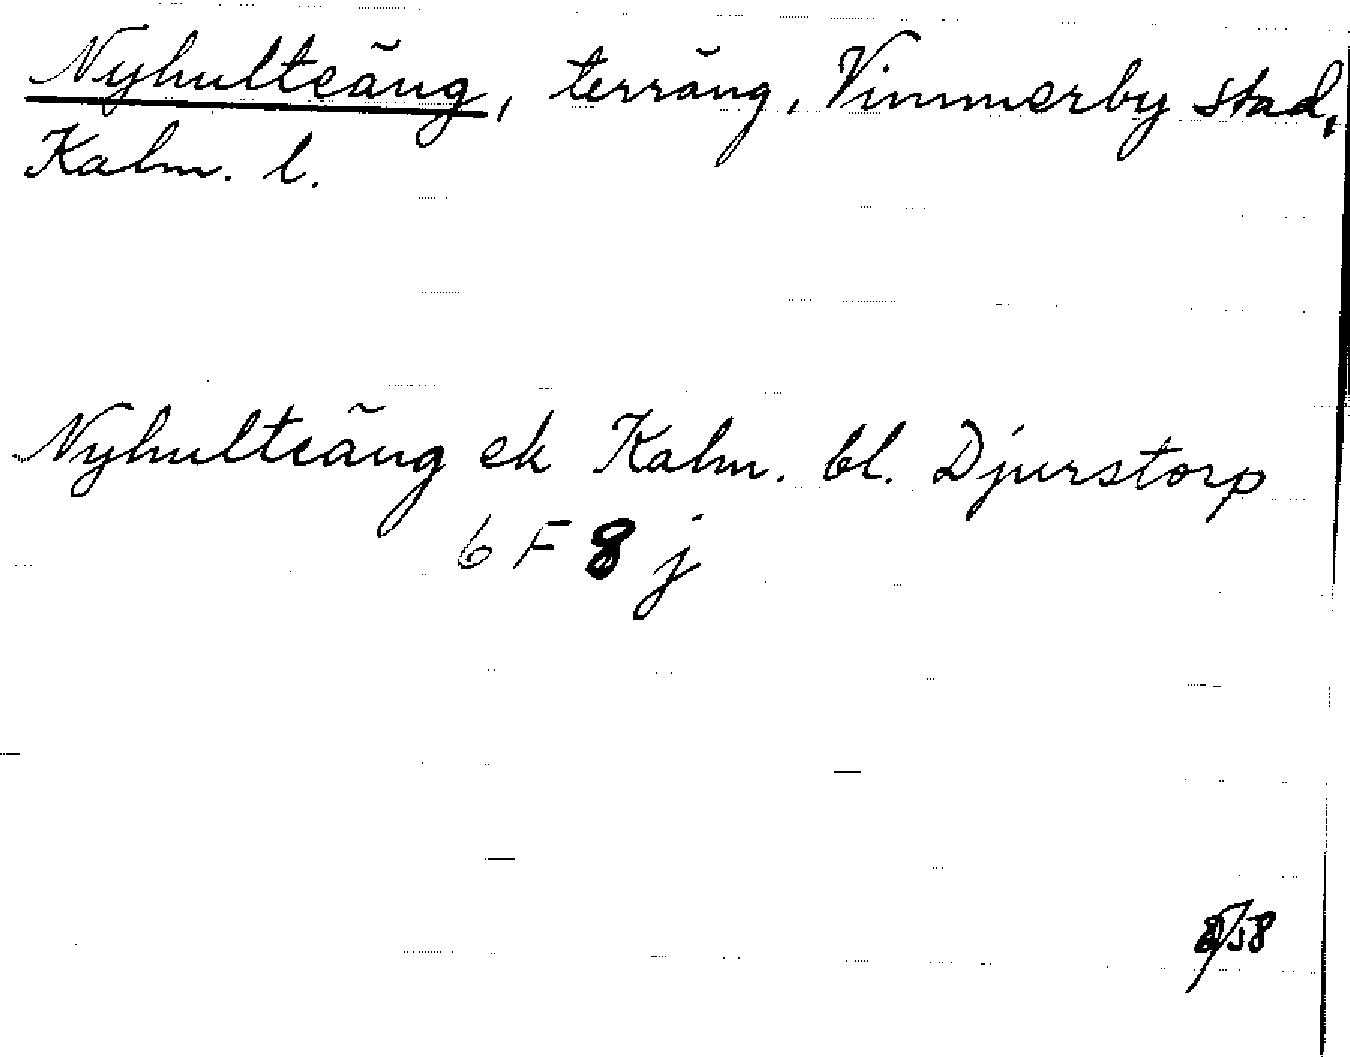 Nyhulteäng, terräng, Vimmerby stad,
Kalm. l.
Nyhulteäng ek Kalm. bl. Djurstorp
6 F 8 j